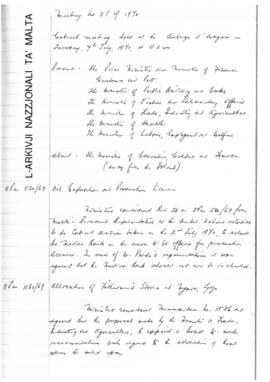 L-ARKIVJI NAZZJONALI TA' MALTA
Meeting No 37 of 1970
Cabinet meeting held at the Auberge d'Aragon on
Tuesday, 7th July, 1970, at 11 a.m.
Present: The Prime Minister and Minister of Finance
Customs and Port
The Minister of Public Building and Works
The Minister of Justice and Parliamentary Affairs
The Minister of Trade, Industry and Agriculture
The Minister of Health
The Minister of Labour, Employment and Welfare
Absent: The Minister of Education, Culture and Tourism
(away from the Island)
OPM 520/69 Oil Exploration and Production Licence
Ministers considered
in OPM 520/69 from
Malta's Permanent Representative at the United Nations relative
to the Cabinet decision taken on the 2nd July 1970, to include
the Medina Bank in the area to be offered for production
licences. In view of Mr. Pardo's representations it was
agreed that the Medina Bank should not be included.
OPM 1160/69 Allocation of
Stores at Mgarr, Gozo
Ministers considered Memorandum No.
and
agreed that the proposal made by the Minister of Trade,
Industry and Agriculture, to appoint a board to make
recommendations with regard to the allocation of these
stores be acted upon.